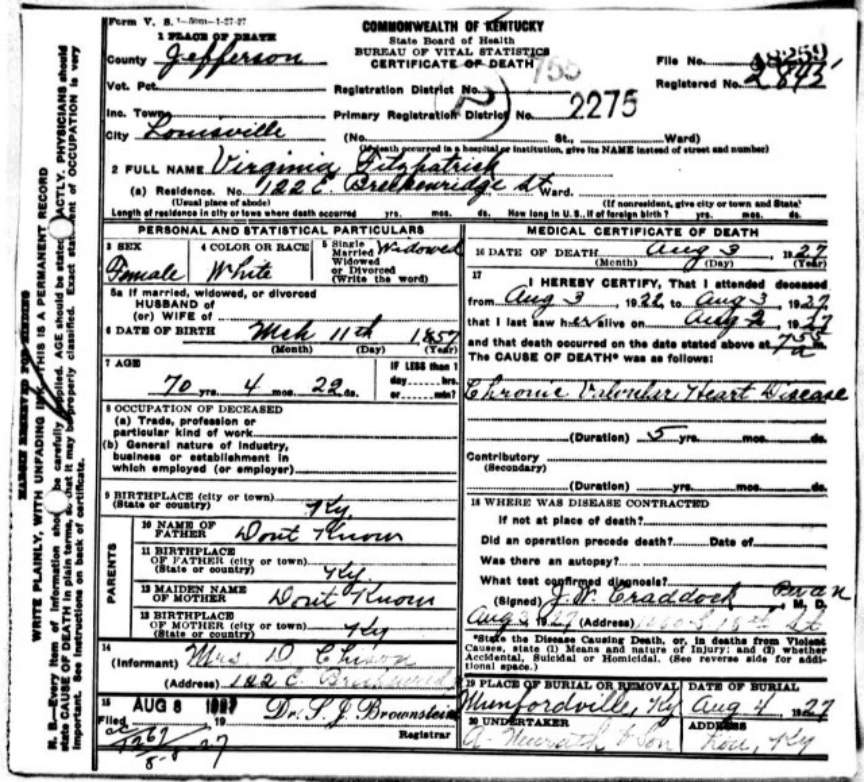 Form V. S. 1-50m-1-27-27
COMMONWEALTH OF KENTUCKY
State Board of Health
BUREAU OF VITAL STATISTICS
CERTIFICATE OF DEATH
1 PLACE OF DEATH
County Jefferson
File No. 18259
755
Vot. Pct.
Registration District No.
Registered No. 2843
Inc. Town
Primary Registration District No. 2275
City Louisville (No. St., Ward)
(If death occurred in a hospital or institution, give its NAME instead of street and number)
2 FULL NAME Virginia Fitzpatrick
(a) Residence. No. 122 E. Breckenridge St Ward.
(Usual place of abode) (If nonresident, give city or town and State)
Length of residence in city or town where death occurred yrs. mos. ds. How long in U.S., if of foreign birth? yrs. mos. ds.
PERSONAL AND STATISTICAL PARTICULARS
3 SEX
Female
4 COLOR OR RACE
White
5 Single
Married
Widowed
or Divorced
(Write the word)
Widowed
5a If married, widowed, or divorced
HUSBAND of
(or) WIFE of
6 DATE OF BIRTH Mch 11th 1857
(Month) (Day) (Year)
7 AGE
70 yrs. 4 mos. 22 ds.
IF LESS than 1
day hrs.
or min?
8 OCCUPATION OF DECEASED
(a) Trade, profession or
particular kind of work
(b) General nature of industry,
business or establishment in
which employed (or employer)
9 BIRTHPLACE (city or town)
(State or country) Ky.
PARENTS
10 NAME OF
FATHER Dont Know
11 BIRTHPLACE
OF FATHER (city or town)
(State or country) Ky.
12 MAIDEN NAME
OF MOTHER Dont Know
13 BIRTHPLACE
OF MOTHER (city or town)
(State or country) Ky
14
(Informant) Mrs. D
(Address) 122 E. Breckenridge
15
Filed AUG 8 1927 19 Dr. S. J. Brownstein
Registrar
8-8-27
MEDICAL CERTIFICATE OF DEATH
16 DATE OF DEATH Aug 3, 1927
(Month) (Day) (Year)
17
I HEREBY CERTIFY, That I attended deceased
from Aug 3, 1922, to Aug 3, 1927
that I last saw her alive on Aug 2, 1927
and that death occurred on the date stated above at 7 55 a m.
The CAUSE OF DEATH* was as follows:
Chronic Valvular Heart Disease
(Duration) 5 yrs. mos. ds.
Contributory
(Secondary)
(Duration) yrs. mos. ds.
18 WHERE WAS DISEASE CONTRACTED
If not at place of death?
Did an operation precede death? Date of
Was there an autopsy?
What test confirmed diagnosis?
(Signed) J. W. Craddock, M. D.
Aug 3, 1927 (Address) St
*State the Disease Causing Death, or, in deaths from Violent
Causes, state (1) Means and nature of Injury; and (2) whether
Accidental, Suicidal or Homicidal. (See reverse side for addi-
tional space.)
19 PLACE OF BURIAL OR REMOVAL
Munfordville, Ky
DATE OF BURIAL
Aug 4, 1927
20 UNDERTAKER
A. Neurath & Son
ADDRESS
Lou, Ky
MARGIN RESERVED FOR BINDING
WRITE PLAINLY, WITH UNFADING INK—THIS IS A PERMANENT RECORD
N. B.—Every item of information should be carefully supplied. AGE should be stated EXACTLY. PHYSICIANS should
state CAUSE OF DEATH in plain terms, so that it may be properly classified. Exact statement of OCCUPATION is very
important. See instructions on back of certificate.